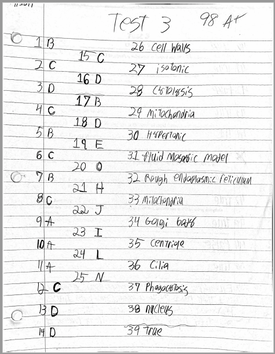 Test 3 98 A+
1 B
2 C
3 D
4 C
5 B
6 C
7 B
8 C
9 A
10 A
11 A
12 C
13 D
14 D
15 C
16 D
17 B
18 D
19 E
20 O
21 H
22 J
23 I
24 L
25 N
26 Cell Walls
27 isotonic
28 Cytolysis
29 Mitochondria
30 Hypertonic
31 Fluid Mosaic model
32 Rough endoplasmic reticulum
33 Mitochondria
34 Golgi body
35 Centriole
36 Cilia
37 Phagocytosis
38 nucleus
39 True